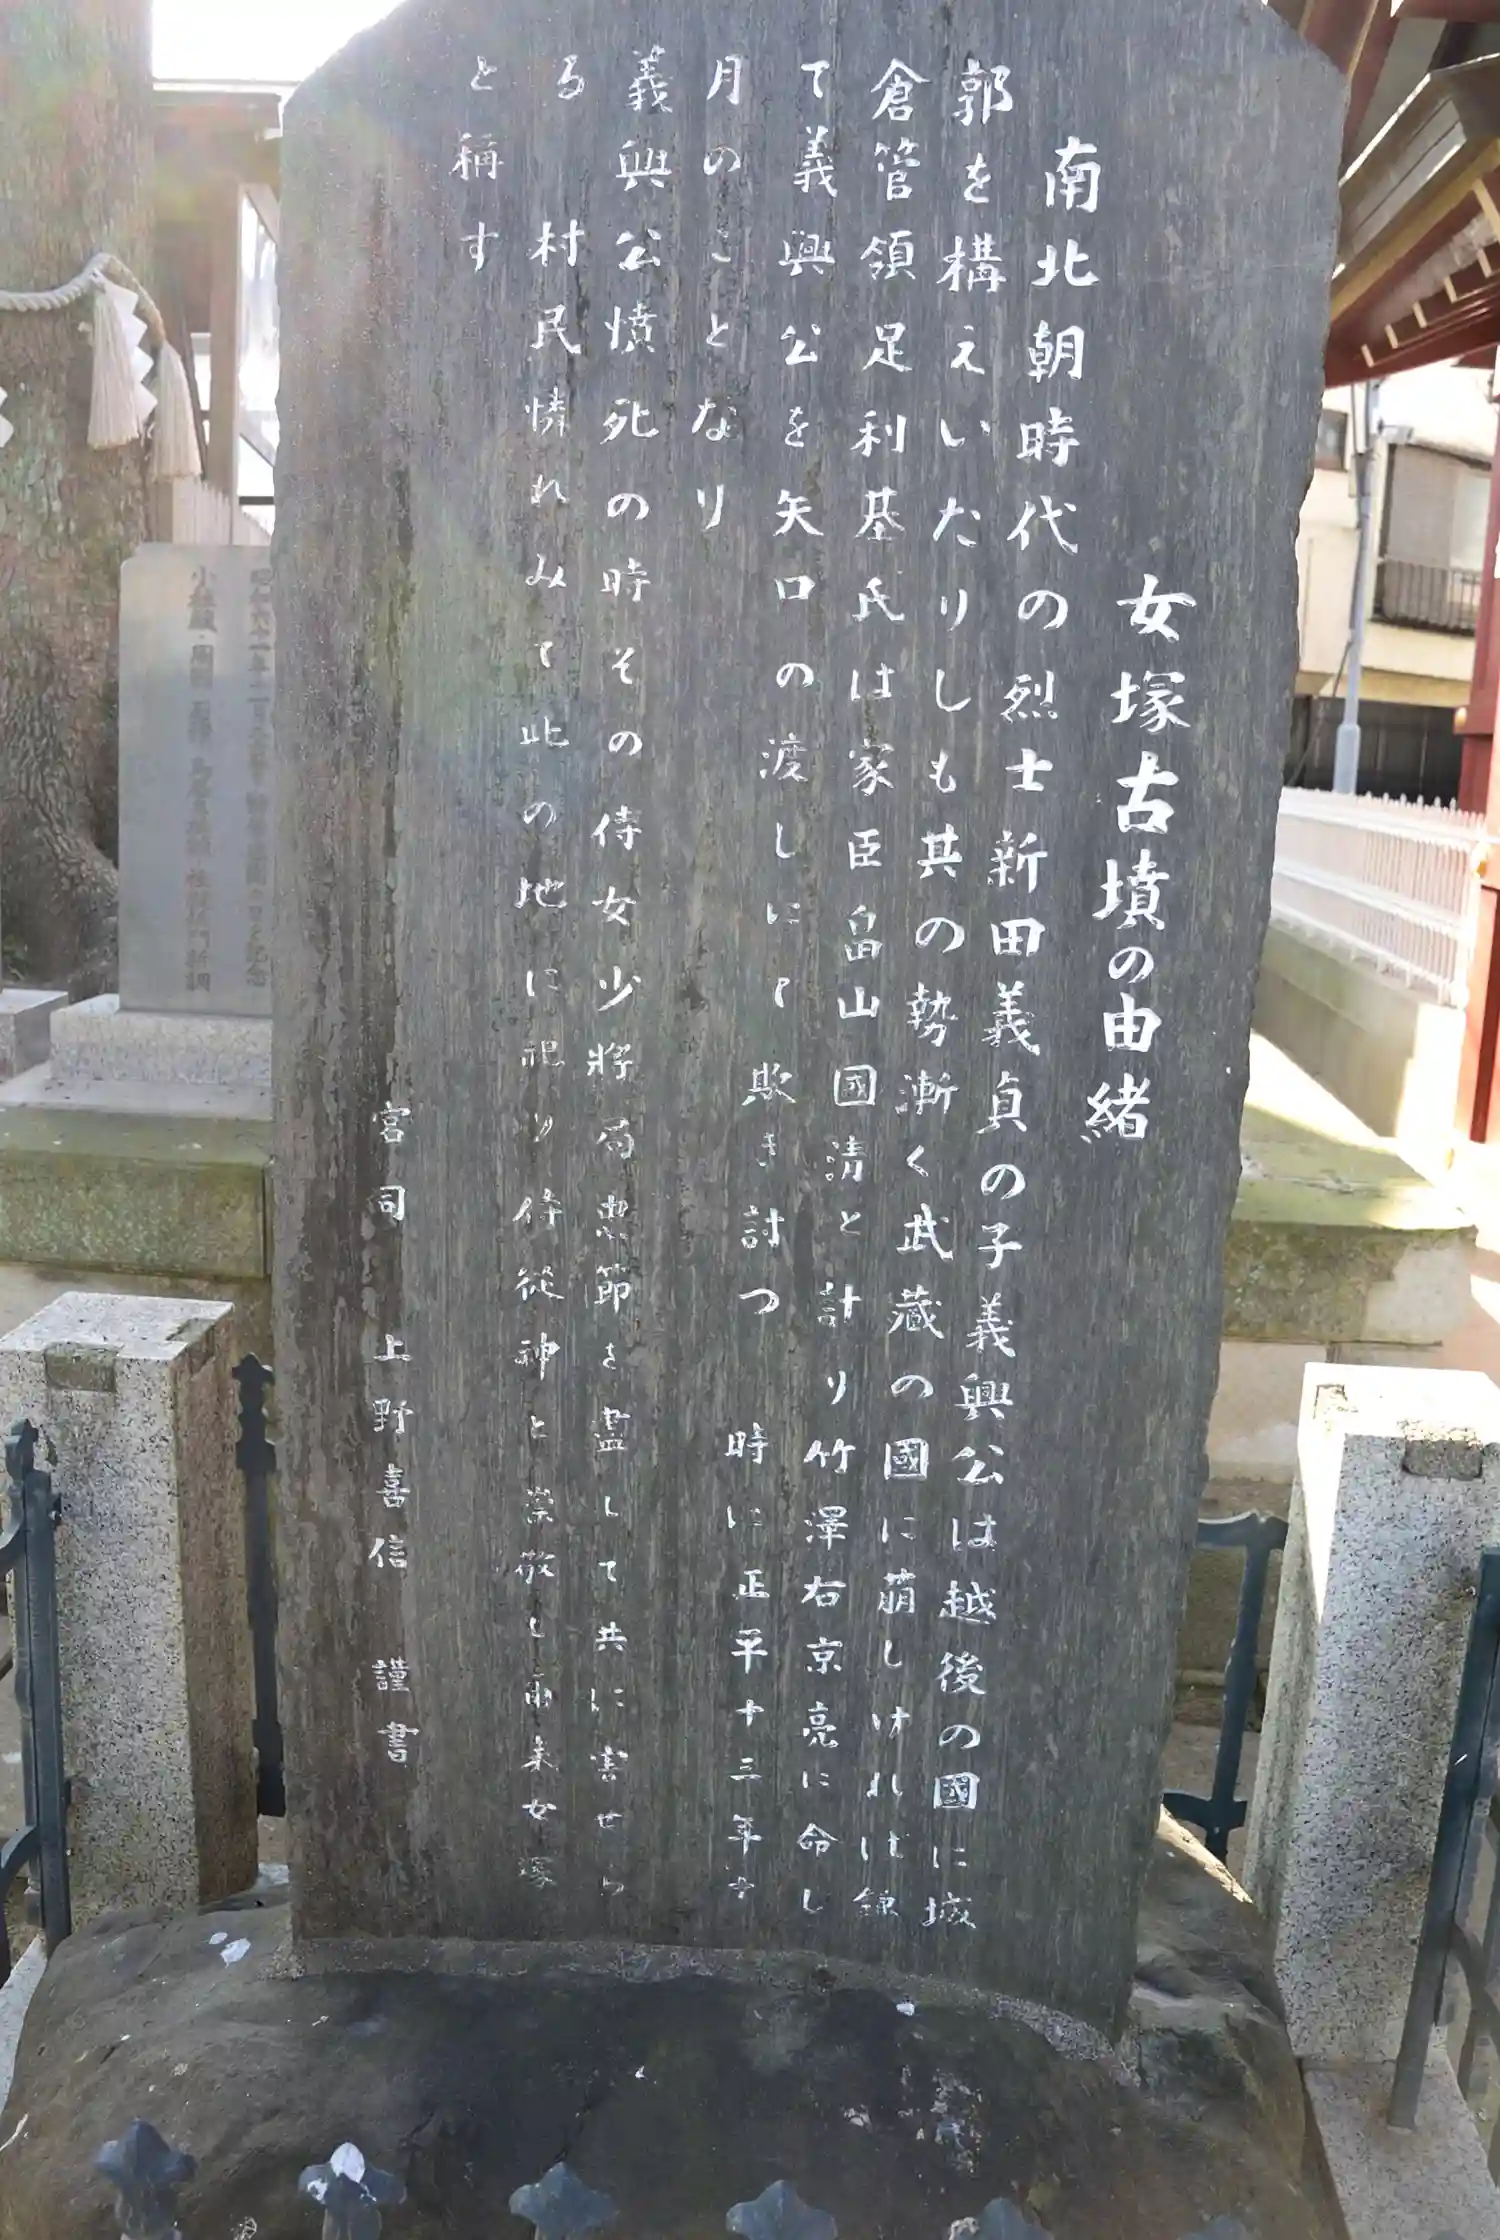 女塚古墳の由緒
南北朝時代の烈士新田義貞の子義興公は越後の國に城
郭を構えいたりしも其の勢漸く武蔵の國に萠しければ鎌
倉管領足利基氏は家臣畠山國清と計り竹澤右京亮に命し
て義興公を矢口の渡しにて欺き討つ 時に正平十三年十
月のことなり
義興公憤死の時その侍女少將局忠節を盡して共に害せら
る 村民憐れみて此の地に祀り侍従神と崇敬し爾来女塚
と稱す
宮司 上野喜信 謹書